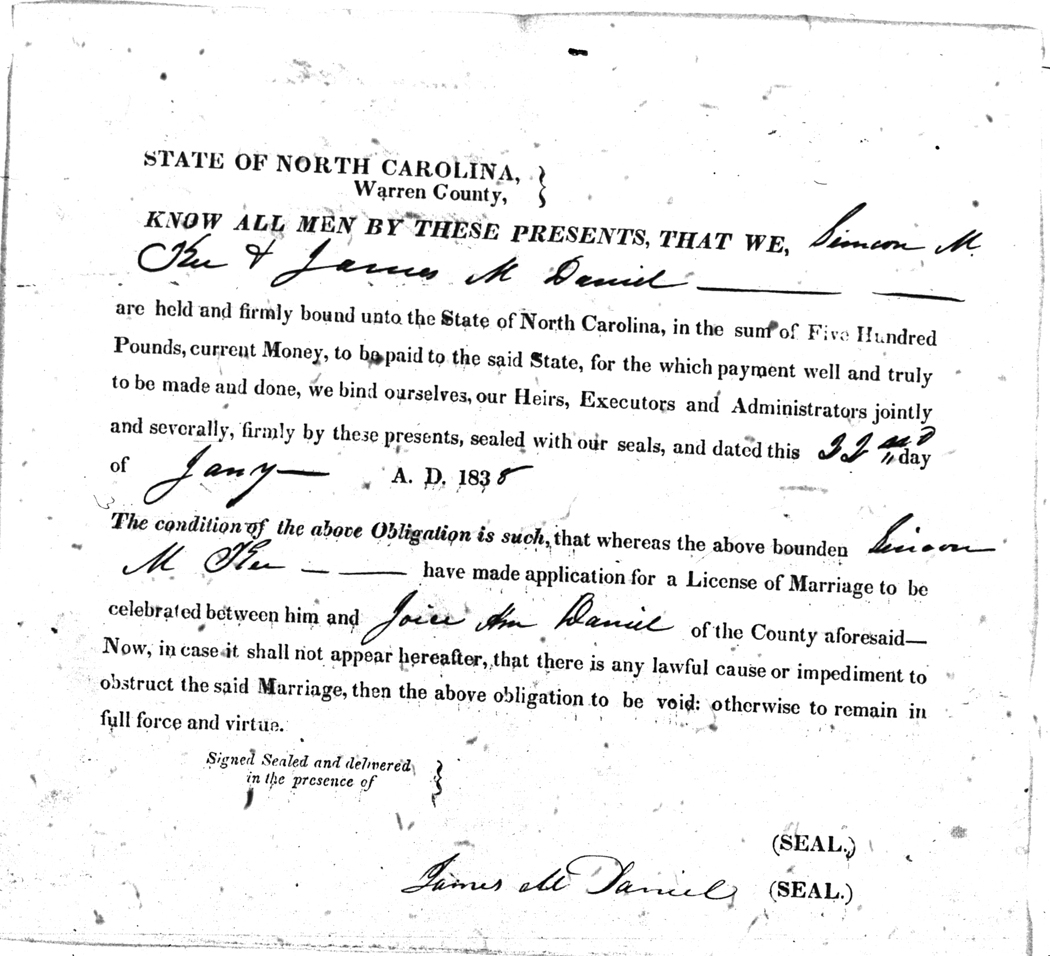 STATE OF NORTH CAROLINA, }
Warren County,
KNOW ALL MEN BY THESE PRESENTS, THAT WE, Simeon M.
Kee & James M Daniel
are held and firmly bound unto the State of North Carolina, in the sum of Five Hundred
Pounds, current Money, to be paid to the said State, for the which payment well and truly
to be made and done, we bind ourselves, our Heirs, Executors and Administrators jointly
and severally, firmly by these presents, sealed with our seals, and dated this 22nd day
of Jany A. D. 1838
The condition of the above Obligation is such, that whereas the above bounden Simeon
M Kee have made application for a License of Marriage to be
celebrated between him and Joice Ann Daniel of the County aforesaid—
Now, in case it shall not appear hereafter, that there is any lawful cause or impediment to
obstruct the said Marriage, then the above obligation to be void: otherwise to remain in
full force and virtue.
Signed Sealed and delivered }
in the presence of
(SEAL.)
James M Daniel (SEAL.)